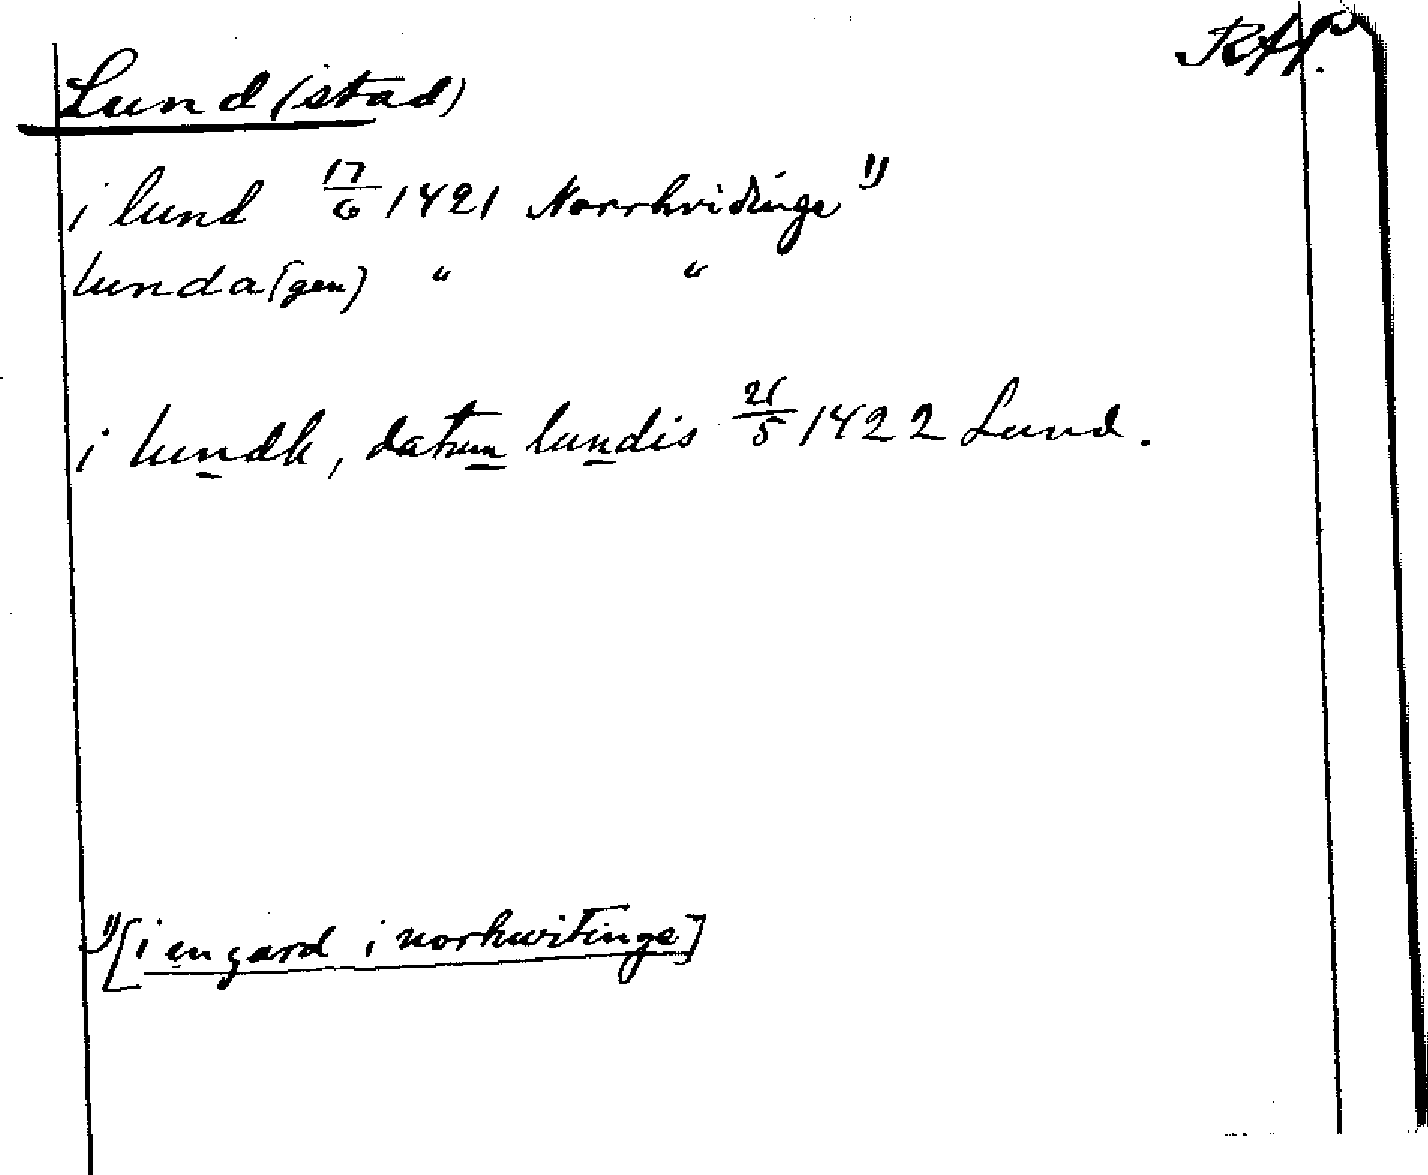 RAp.
Lund (stad)
i lund 17/6 1421 Norrhvidinge 1)
lunda (gen) " "
i lundh, datum lundis 21/5 1422 Lund.
1) [i en gard i norhwitinge]